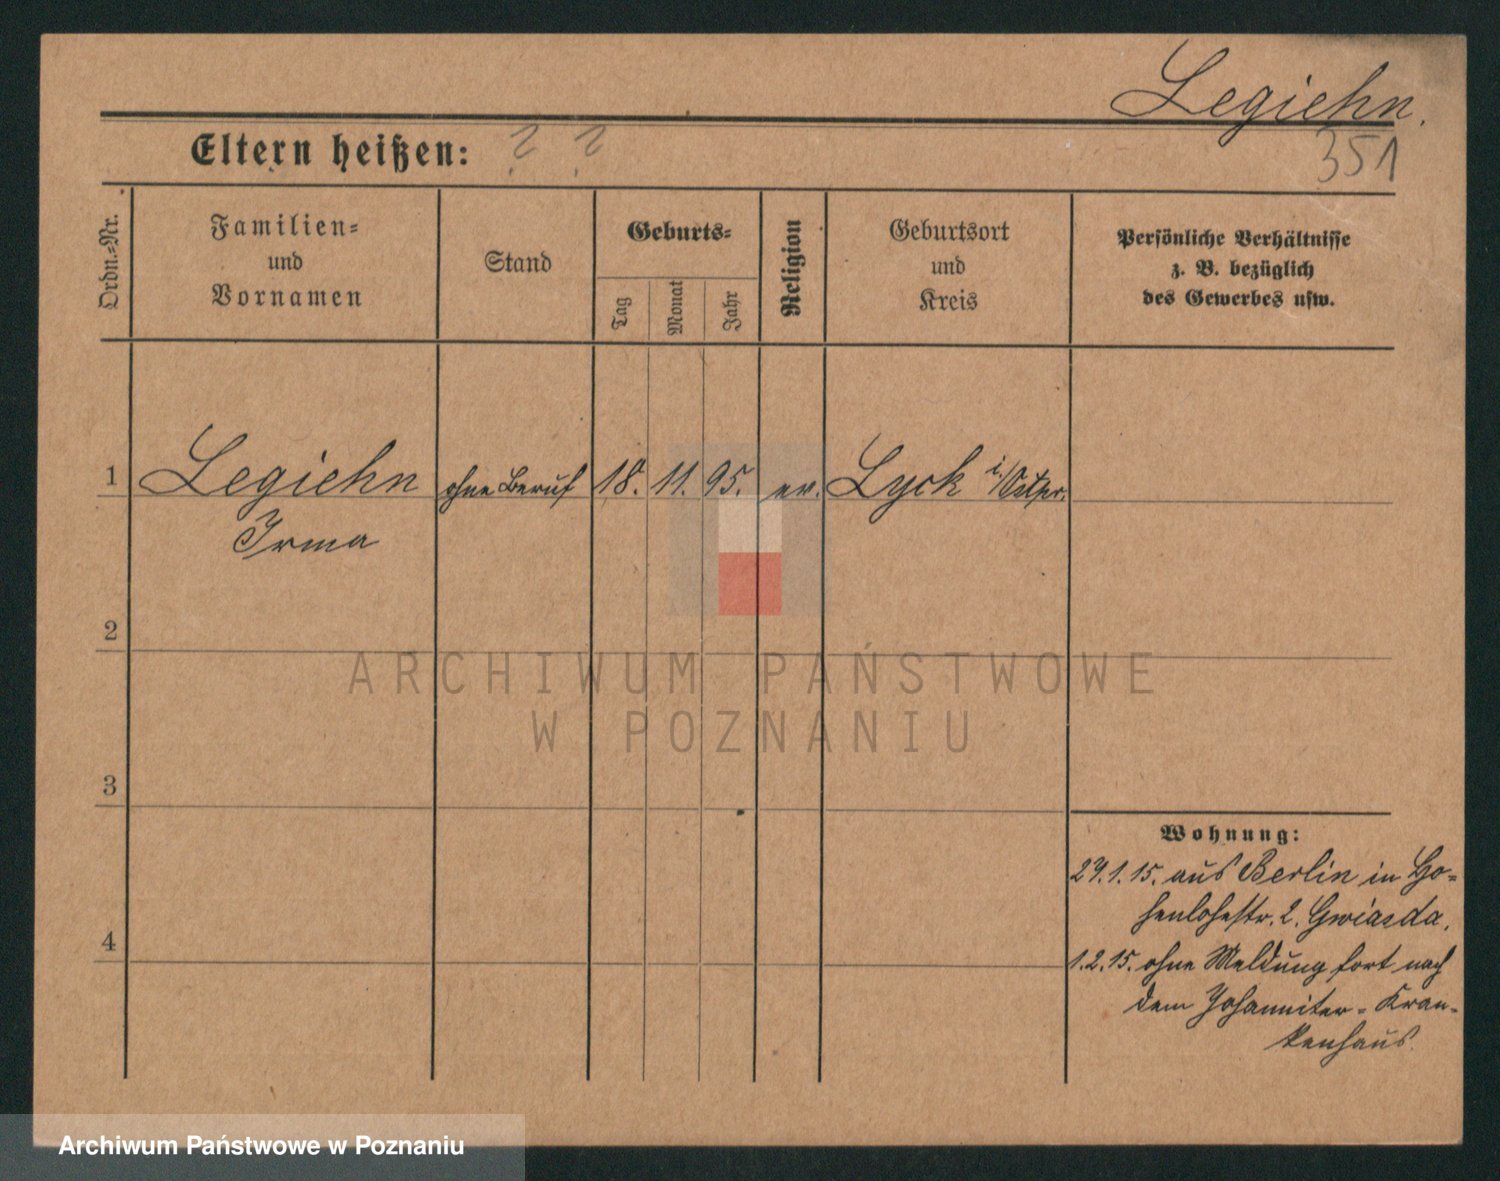 Legiehn.
351
Eltern heißen: ? ?
Ordn.-Nr.
Familien-
und
Vornamen
Stand
Geburts-
Tag
Monat
Jahr
Religion
Geburtsort
und
Kreis
Persönliche Verhältnisse
z. B. bezüglich
des Gewerbes usw.
1 Legiehn ohne Beruf 18. 11. 95. ev. Lyck i/Ostpr.
Irma
2
3
4
ARCHIWUM PAŃSTWOWE
W POZNANIU
Wohnung:
29.1.15. aus Berlin in Ho-
henlohestr. 2. Gwiasda.
1.2.15. ohne Meldung fort nach
dem Johanniter-Kran-
kenhaus.
Archiwum Państwowe w Poznaniu